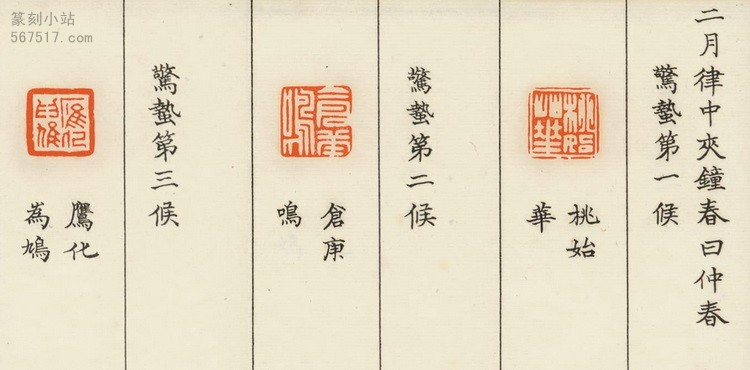 二月律中夾鐘春曰仲春
驚蟄第一候
桃始
華
桃始
華
驚蟄第二候
倉庚
鳴
倉庚
鳴
驚蟄第三候
鷹化
為鳩
篆刻小站
567517.com